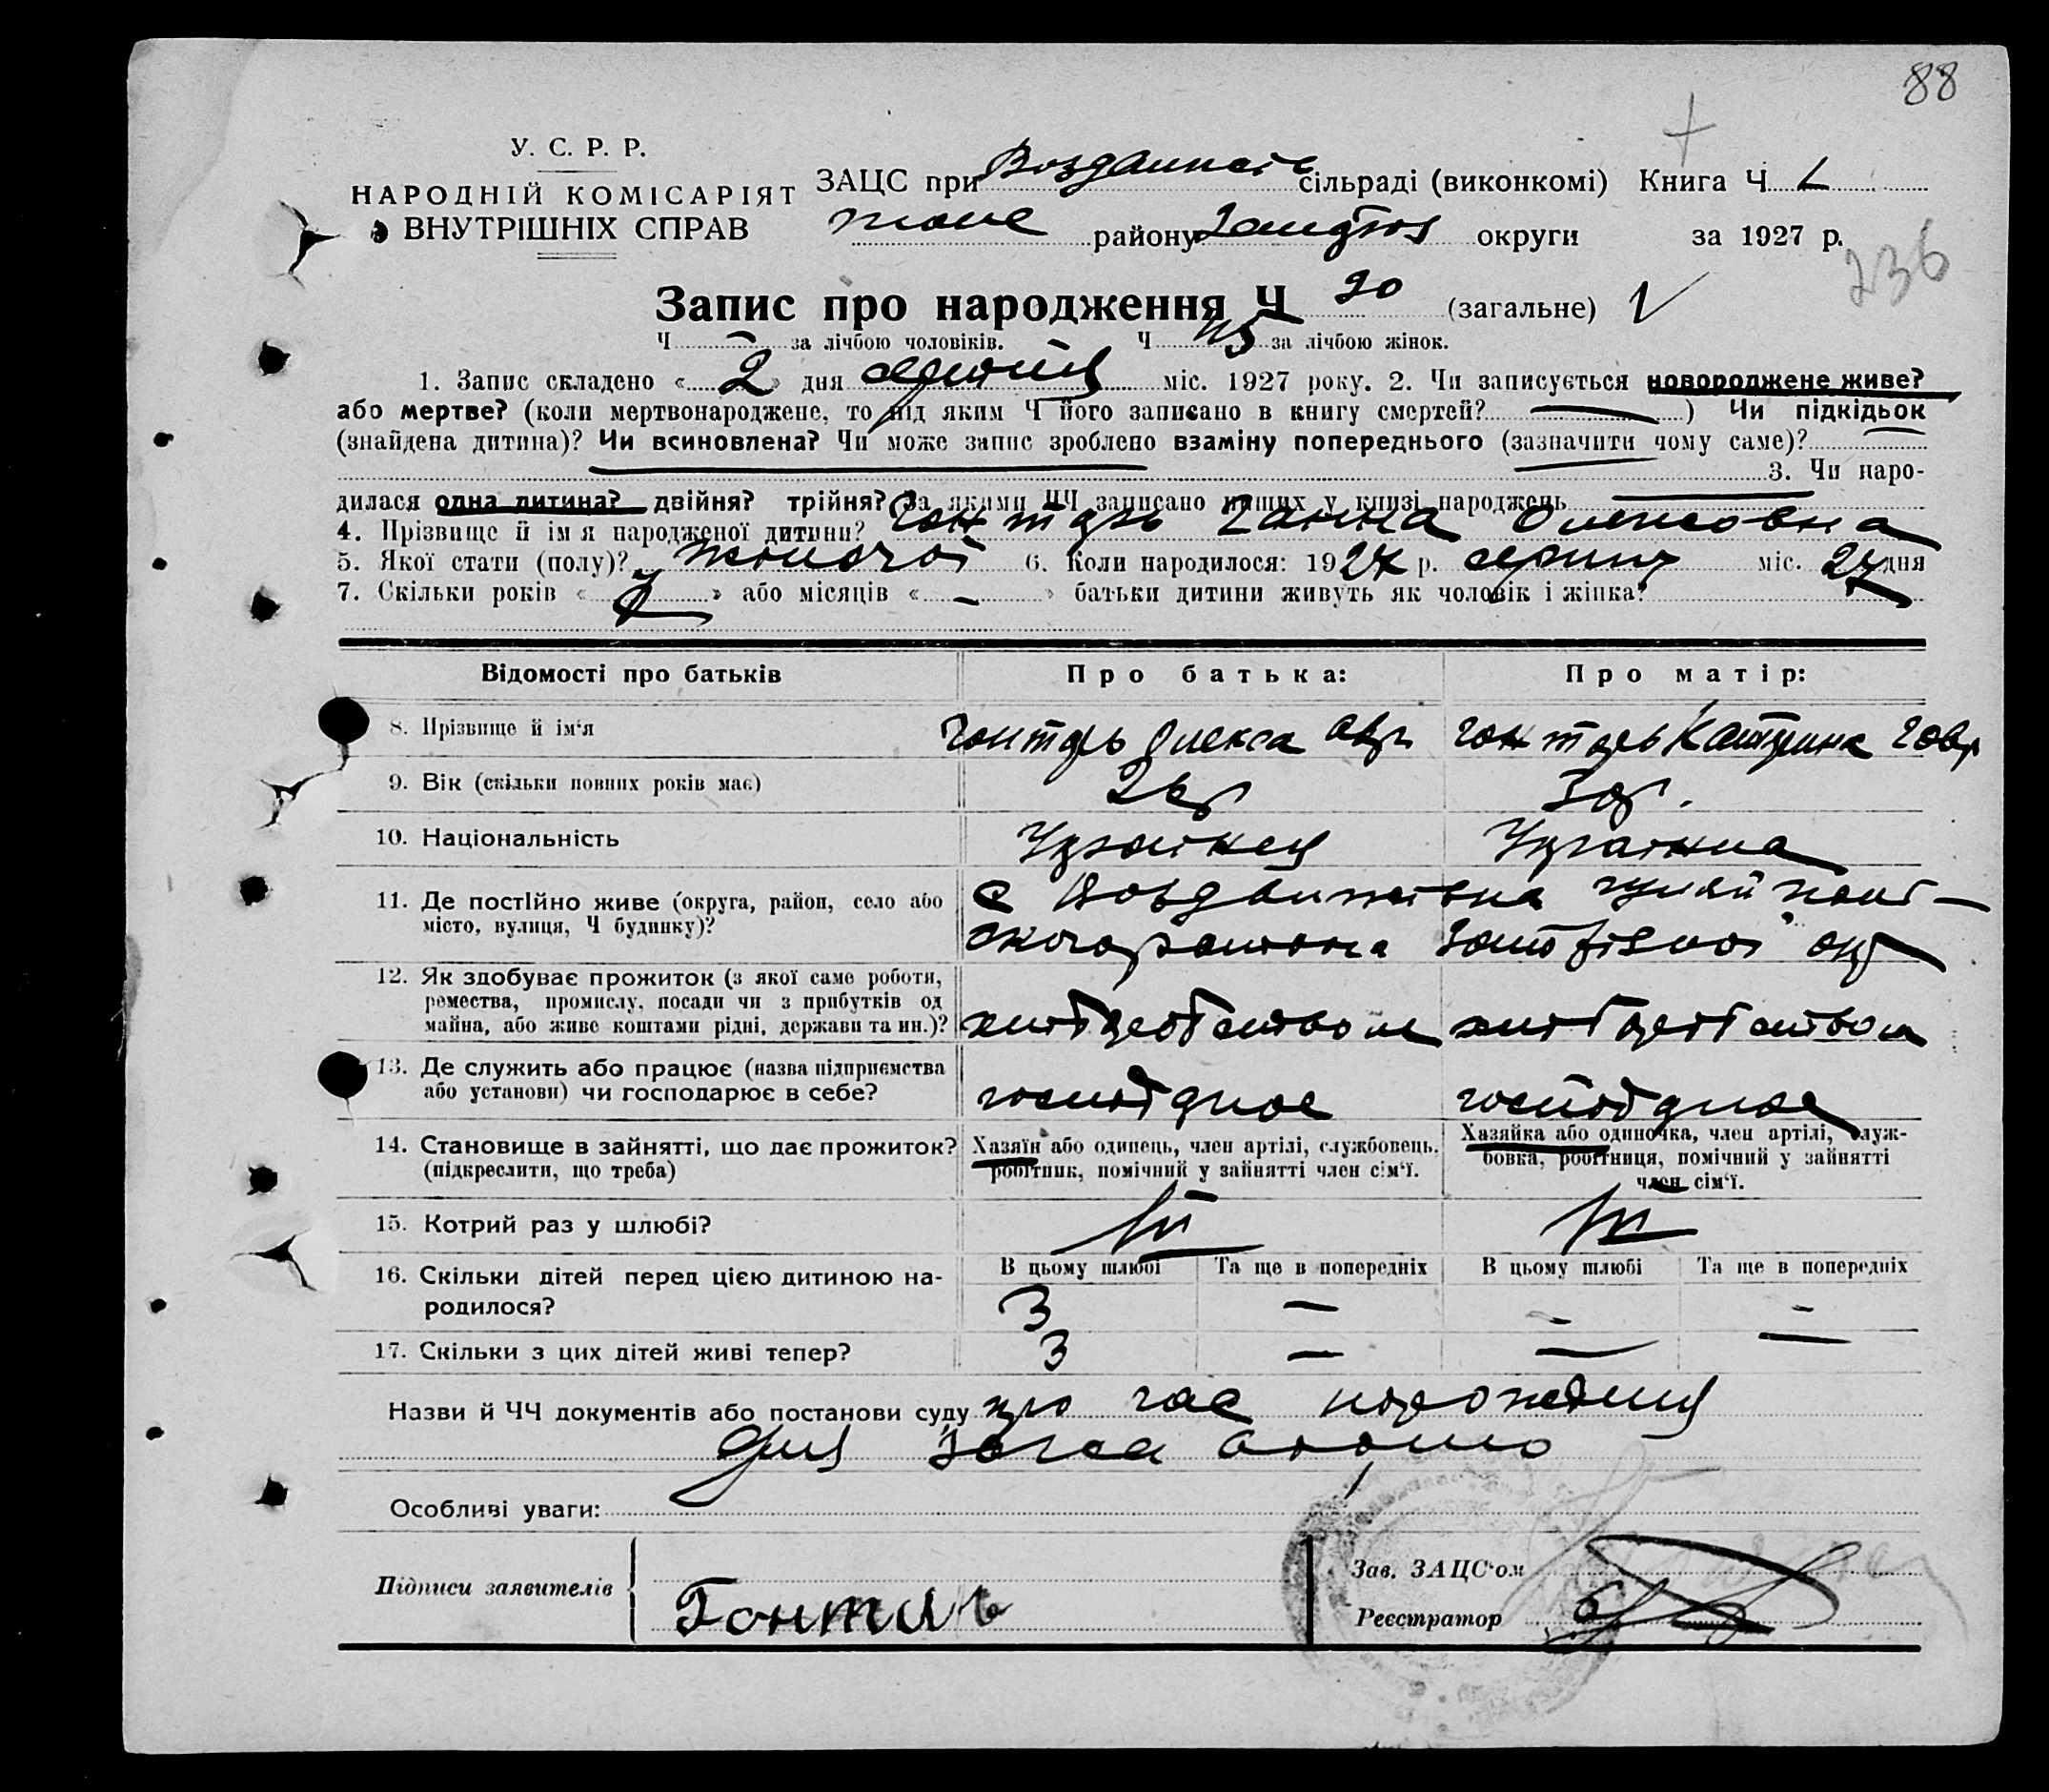 88
У. С. Р. Р.
НАРОДНІЙ КОМІСАРІЯТ
ВНУТРІШНІХ СПРАВ
ЗАЦС при сільраді (виконкомі) Книга Ч
району округи за 1927 р.
236
Запис про народження Ч (загальне)
Ч за лічбою чоловіків. Ч 45 за лічбою жінок.
1. Запис складено «2» дня міс. 1927 року. 2. Чи записується новороджене живе?
або мертве? (коли мертвонароджене, то під яким Ч його записано в книгу смертей? —) Чи підкідьок
(знайдена дитина)? Чи всиновлена? Чи може запис зроблено взаміну попереднього (зазначити чому саме)?
3. Чи наро-
дилася одна дитина? двійня? трійня? За якими ЧЧ записано инших у книзі народжень
4. Прізвище й ім я народженої дитини? Гонтарь Ганна Олексовна
5. Якої стати (полу)? жіночої 6. Коли народилося: 1927 р. міс. 27 дня
7. Скільки років « » або місяців « – » батьки дитини живуть як чоловік і жінка?
Відомості про батьків Про батька: Про матір:
8. Прізвище й ім'я Гонтарь Олекса Гонтарь Катерина Гавр
9. Вік (скільки повних років має) 26р 30р.
10. Національність Українец Українка
11. Де постійно живе (округа, район, село або
місто, вулиця, Ч будинку)?
с Воздвижівка Гуляйпол–
ского района
12. Як здобуває прожиток (з якої саме роботи,
ремества, промислу, посади чи з прибутків од
майна, або живе коштами рідні, держави та ин.)?
хліборобством хліборобством
13. Де служить або працює (назва підприємства
або установи) чи господарює в себе?
14. Становище в зайнятті, що дає прожиток?
(підкреслити, що треба)
Хазяїн або одинець, член артілі, службовець,
робітник, помічний у зайнятті член сім'ї.
Хазяйка або одиночка, член артілі, служ-
бовка, робітниця, помічний у зайнятті
член сім'ї.
15. Котрий раз у шлюбі?
В цьому шлюбі Та ще в попередніх В цьому шлюбі Та ще в попередніх
16. Скільки дітей перед цією дитиною на-
родилося?
3 – – –
17. Скільки з цих дітей живі тепер? 3 — — —
Назви й ЧЧ документів або постанови суду про час
Для
Особливі уваги:
Підписи заявителів Гонтарь
Зав. ЗАЦС'ом
Реєстратор